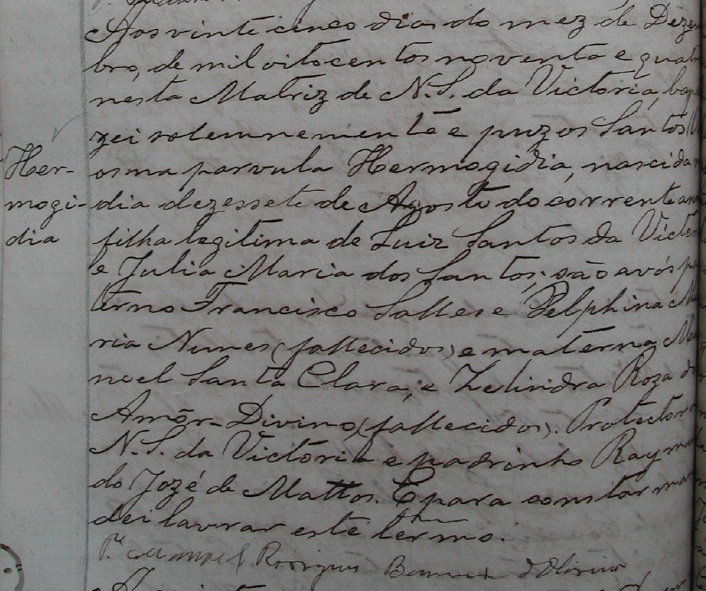 Aos vinte cinco dias do mez de Dezem
bro, de mil oitocentos noventa e quatro
nesta Matriz de N. S. da Victoria, bap
zei solemnemente e puz os Santos
Her-
mogi-
dia
os na parvula Hermogidia, nascida
dia dezessete de Agosto do corrente an
filha legitima de Luiz Santos da Victor
e Julia Maria dos Santos; são avós pa
terno Francisco Salles e Delphina Ma
ria Nunes (fallecidos) e materna Ma
noel Santa Clara, e Zelindra Roza do
Amôr-Divino (fallecidos). Protectora
N. S. da Victoria e padrinho Raymun
do Jozé de Mattos. E para constar man
dei lavrar este termo.
P.e Manoel Rodrigues d'Oliveira